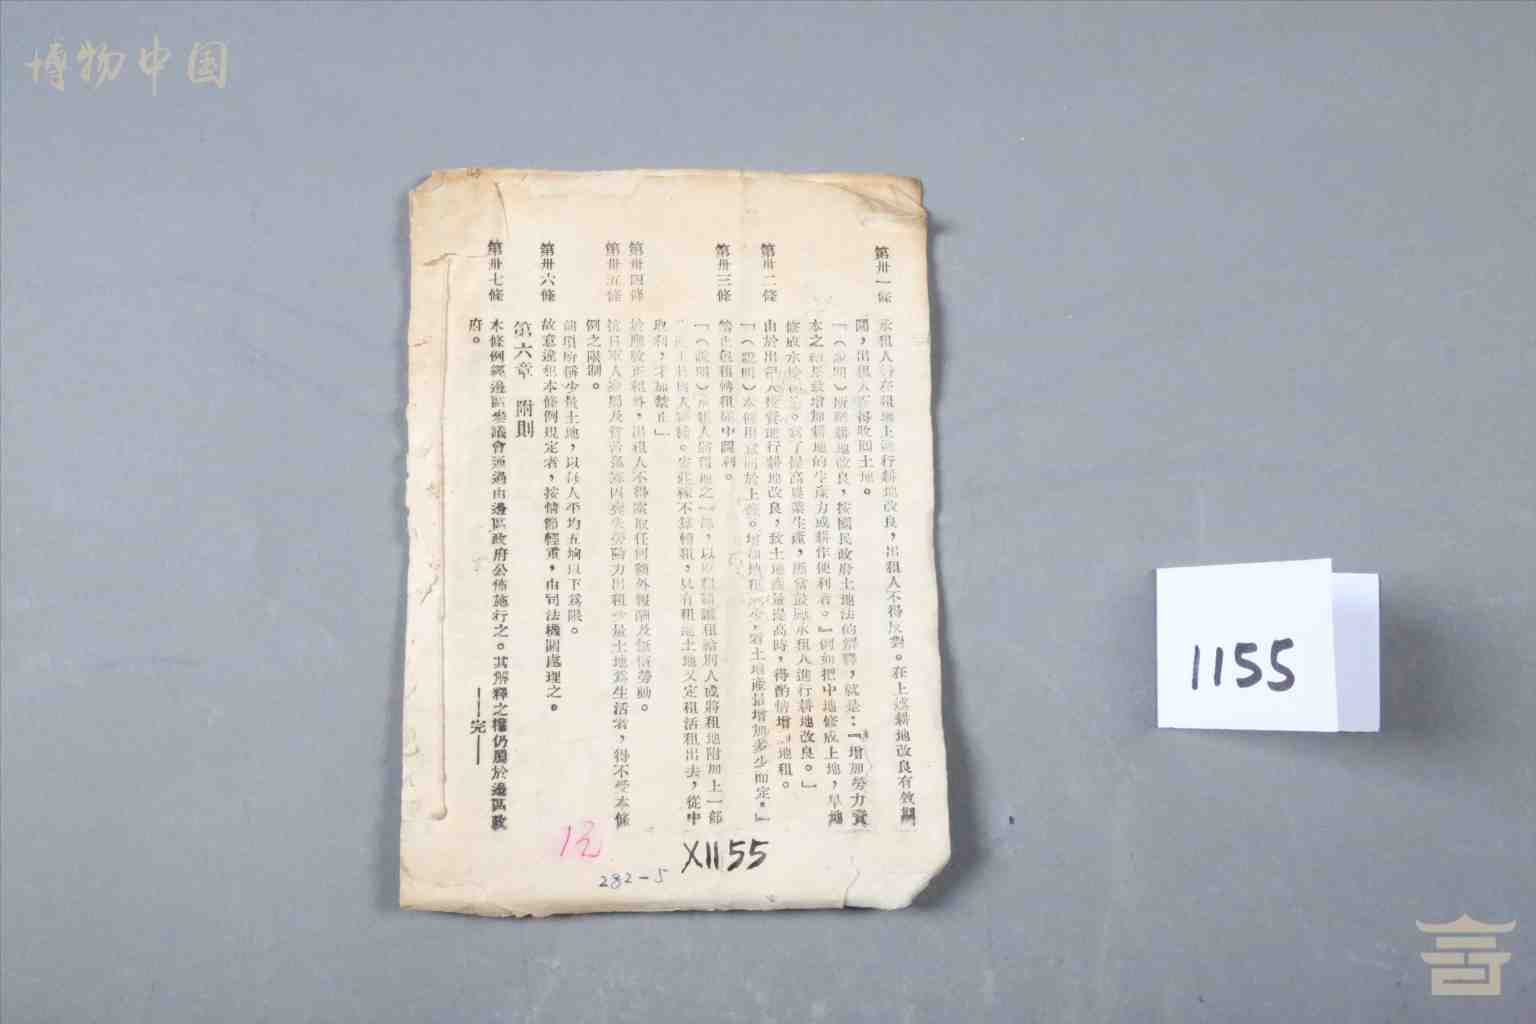 博物中国
第卅一條 承租人得在租地上進行耕地改良，出租人不得反對。在上述耕地改良有效期
間，出租人不得收囘土地。
『（說明）所謂耕地改良，按國民政府土地法的解釋，就是：『增加勞力資
本之結果致增加耕地的生產力或耕作便利者。』例如把中地修成上地，旱地
修成水地。為了提高農業生產，應當鼓勵承租人進行耕地改良。」
第卅二條 由於出租人投資進行耕地改良，致土地產量提高時，得酌情增加地租。
『（說明）本條用意同於上條。增加地租多少，看土地產量增加多少而定。』
第卅三條 禁止包租轉租從中圖利。
『（說明）承租人將租地之一部，以原租額讓租給別人或將租地附加上一部
不算轉租，只有租進土地又定租活租出去，從中
取利，才加禁止」
第卅四條 於應收正租外，出租人不得索取任何額外報酬及無償勞動。
第卅五條 抗日軍人家屬及貧苦孤寡因喪失勞動力出租少量土地為生活者，得不受本條
例之限制。
前項所稱少量土地，以每人平均五垧以下為限。
第卅六條 故意違犯本條例規定者，按情節輕重，由司法機關處理之。
第六章 附則
第卅七條 本條例經邊區參議會通過由邊區政府公佈施行之。其解釋之權仍屬於邊區政
府。
——完——
1元
282-5
X1155
1155